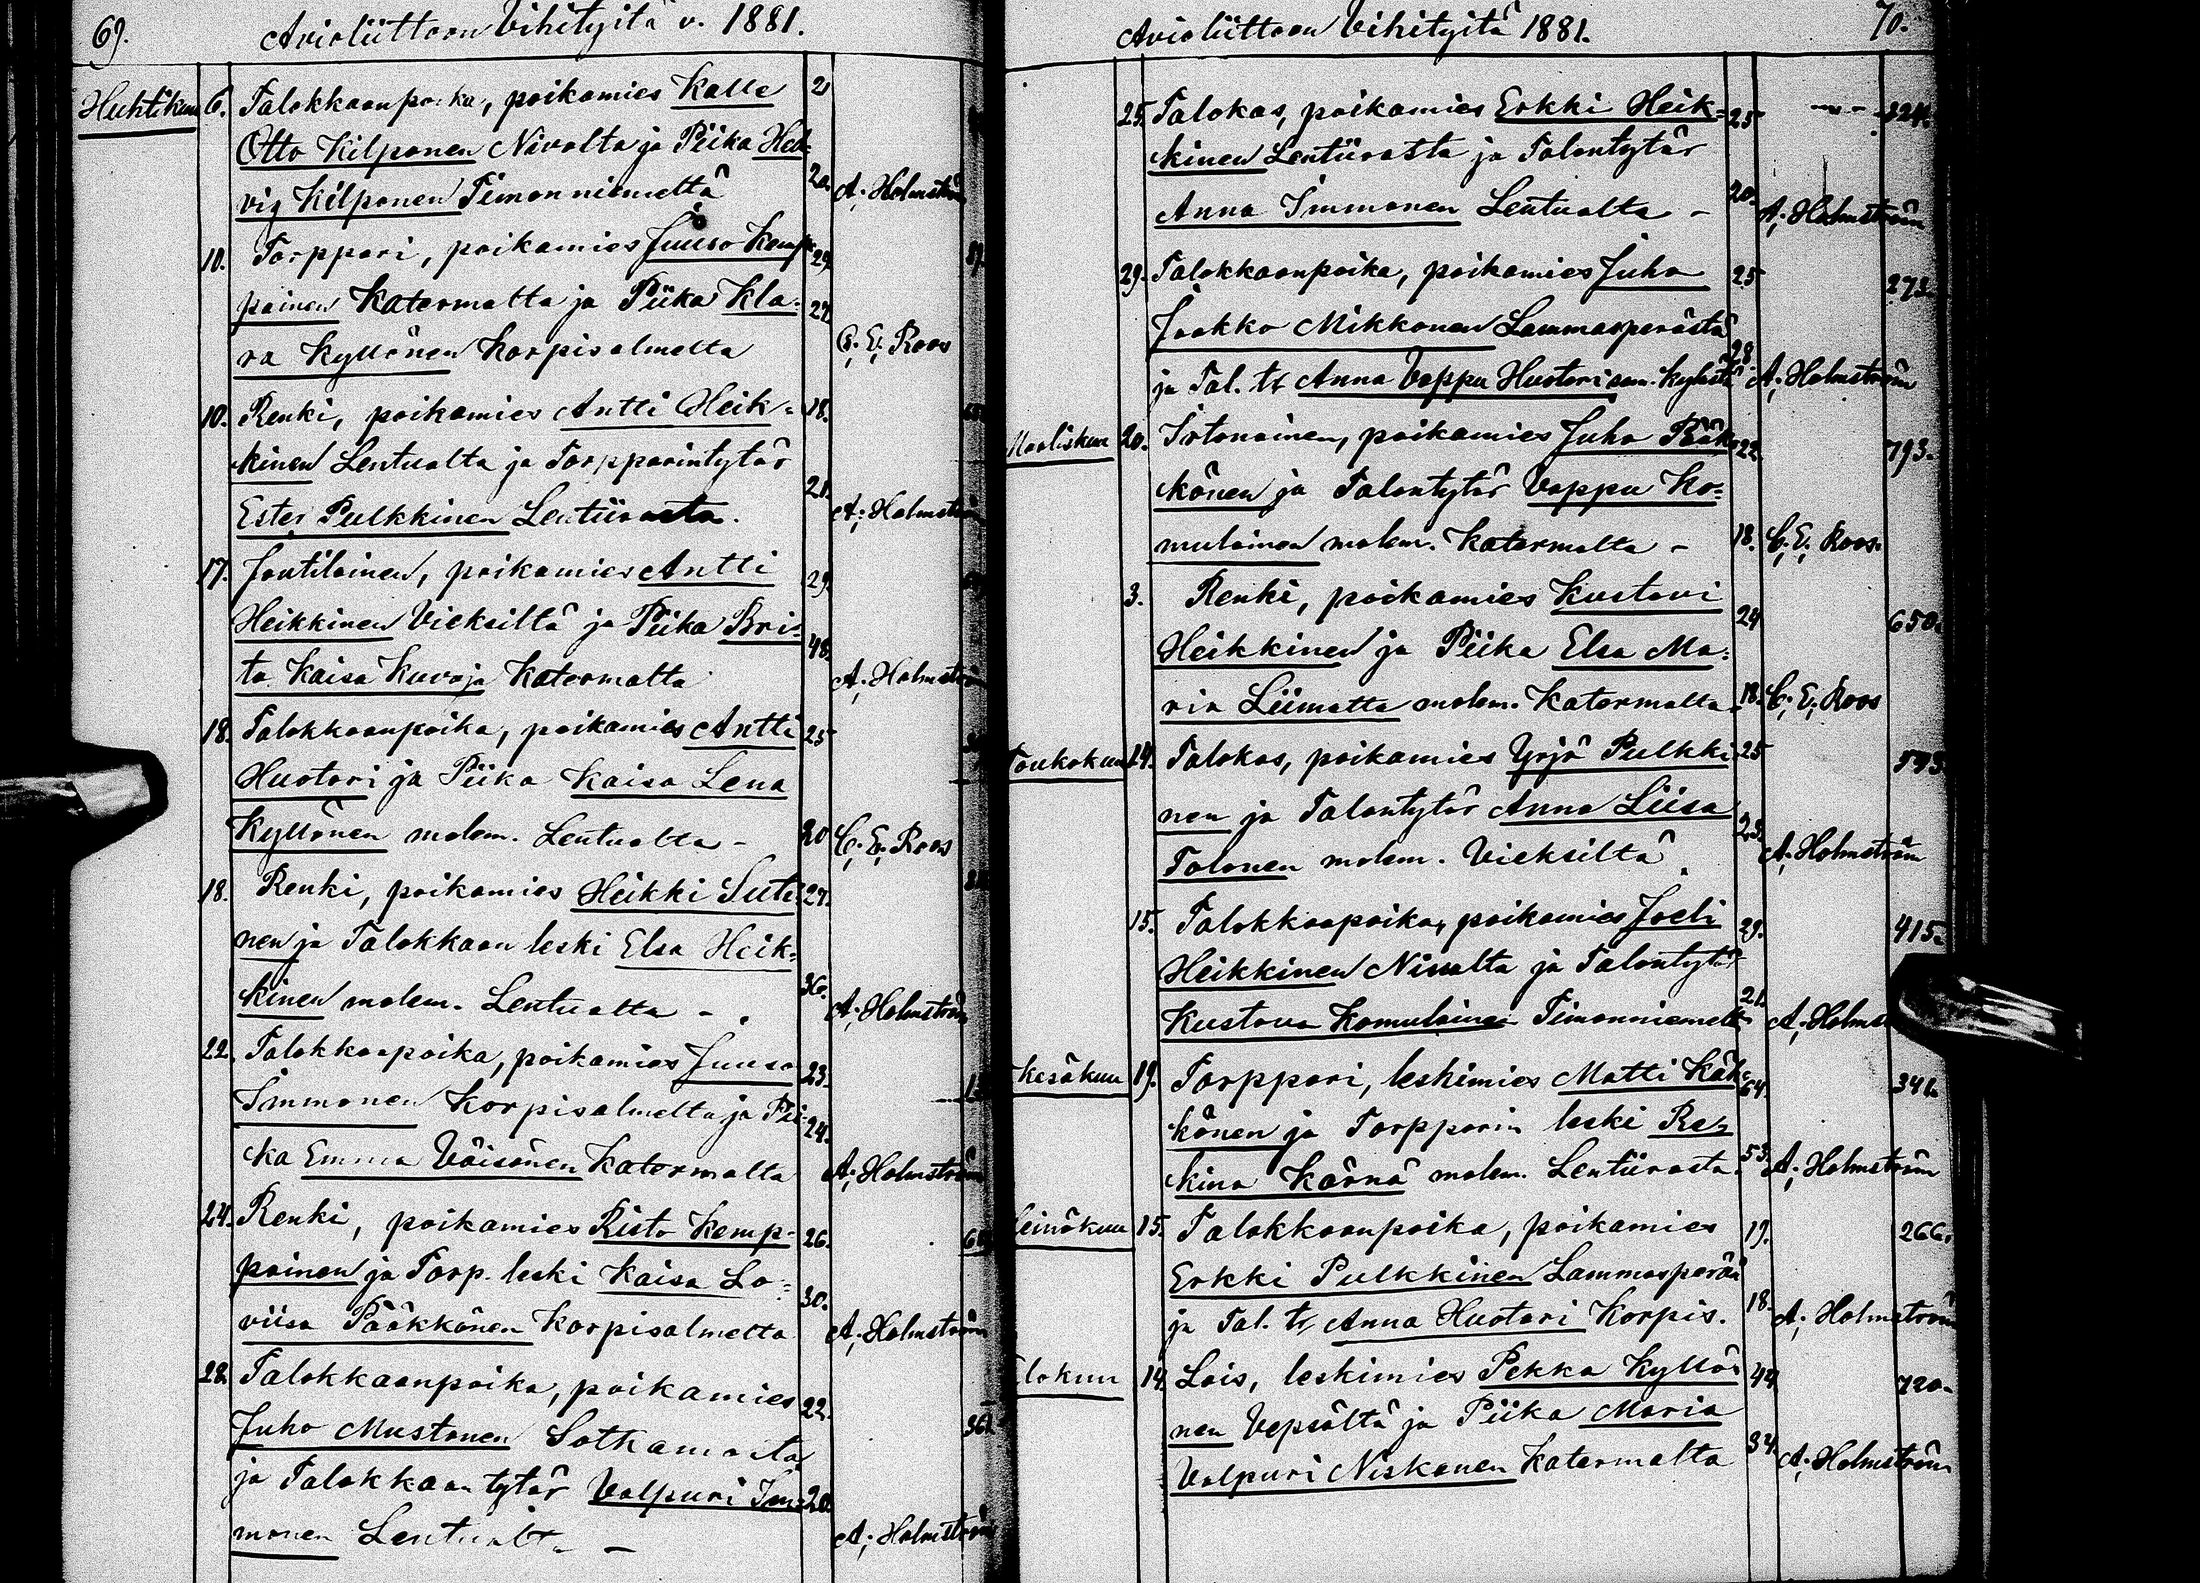 69. Avioliittoon Vihityitä v. 1881.
Huhtikuu 6. Talokkaanpoika, poikamies Kalle 2
Otto Kilponen Nivalta ja Piika Hed=
vig Kilponen Timonniemeltä 20. A. Holmström
10. Torppari, poikamies Juuso Kemp 29.
painen Katermalta ja Piika Kla= 27.
ra Kyllönen Korpisalmelta C. E. Roos
10. Renki, poikamies Antti Heik= 18.
kinen Lentualta ja Torpparintytär
Ester Pulkkinen Lentiirasta. 21. A. Holmström
17. Joutilainen, poikamies Antti 29.
Heikkinen Vieksiltä ja Piika Bri= 48.
ta Kaisa Kuvaja Katermalta A. Holmström
18. Talokkaanpoika, poikamies Antti 25
Huotari ja Piika Kaisa Lena
Kyllönen molem. Lentualta - 20 C. E. Roos
18. Renki, poikamies Heikki Suti= 27.
nen ja Talokkaan leski Elsa Heik=
kinen molem. Lentualta - 36. A. Holmström
22. Talokkaapoika, poikamies Juuso 23.
Immonen Korpisalmelta ja Pii= 24.
ka Emma Väisänen Katermalta A. Holmström
24. Renki, poikamies Risto Kemp= 26.
painen ja Torp. leski Kaisa Lo= 30.
viisa Pääkkönen Korpisalmelta A. Holmström
28. Talokkaanpoika, poikamies 22.
Juho Mustonen Sotkamosta
ja Talokkaan tytär Valpuri Im= 20.
monen Lentualta - A. Holmström
Avioliittoon Vihityitä 1881. 70.
25. Talokas, poikamies Erkki Heik= 25 324.
kinen Lentiirasta ja Talontytär
Anna Immonen Lentualta - 20. A. Holmström
29. Talokkaanpoika, poikamies Juho 25 273.
Jaakko Mikkonen Lammasperästä
ja Tal. tr Anna Vappu Huotari sam. kylästä 28 A. Holmström
Maaliskuu 20. Irtonainen, poikamies Juho Pääk= 22. 793.
könen ja Talontytär Vappu Ko=
mulainen molem. Katermalta - 18. C. E. Roos.
3. Renki, poikamies Kustavi 24 650.
Heikkinen ja Piika Elsa Ma=
ria Liimatta molem. Katermalta. 18. C. E. Roos
Toukokuu 14. Talokas, poikamies Yrjö Pulkki= 25
nen ja Talontytär Anna Liisa
Tolonen molem. Vieksiltä 23. A. Holmström
15. Talokkaapoika, poikamies Joeli 29. 415.
Heikkinen Nivalta ja Talontytär
Kustava Komulainen Timonniemelt 21. A. Holms
Kesäkuu 19. Torppari, leskimies Matti Käk= 64. 341.
könen ja Torpparin leski Re=
kina Kärnä molem. Lentiirasta. 53. A. Holmström
Heinäkuu 15. Talokkaanpoika, poikamies 19. 266.
Erkki Pulkkinen Lammasperän
ja Tal. tr Anna Huotari Korpis. 18. A. Holmström
Elokuu 14. Lois, leskimies Pekka Kyllö= 44 720.
nen Vepsältä ja Piika Maria
Valpuri Niskanen Katermalta 34. A. Holmström